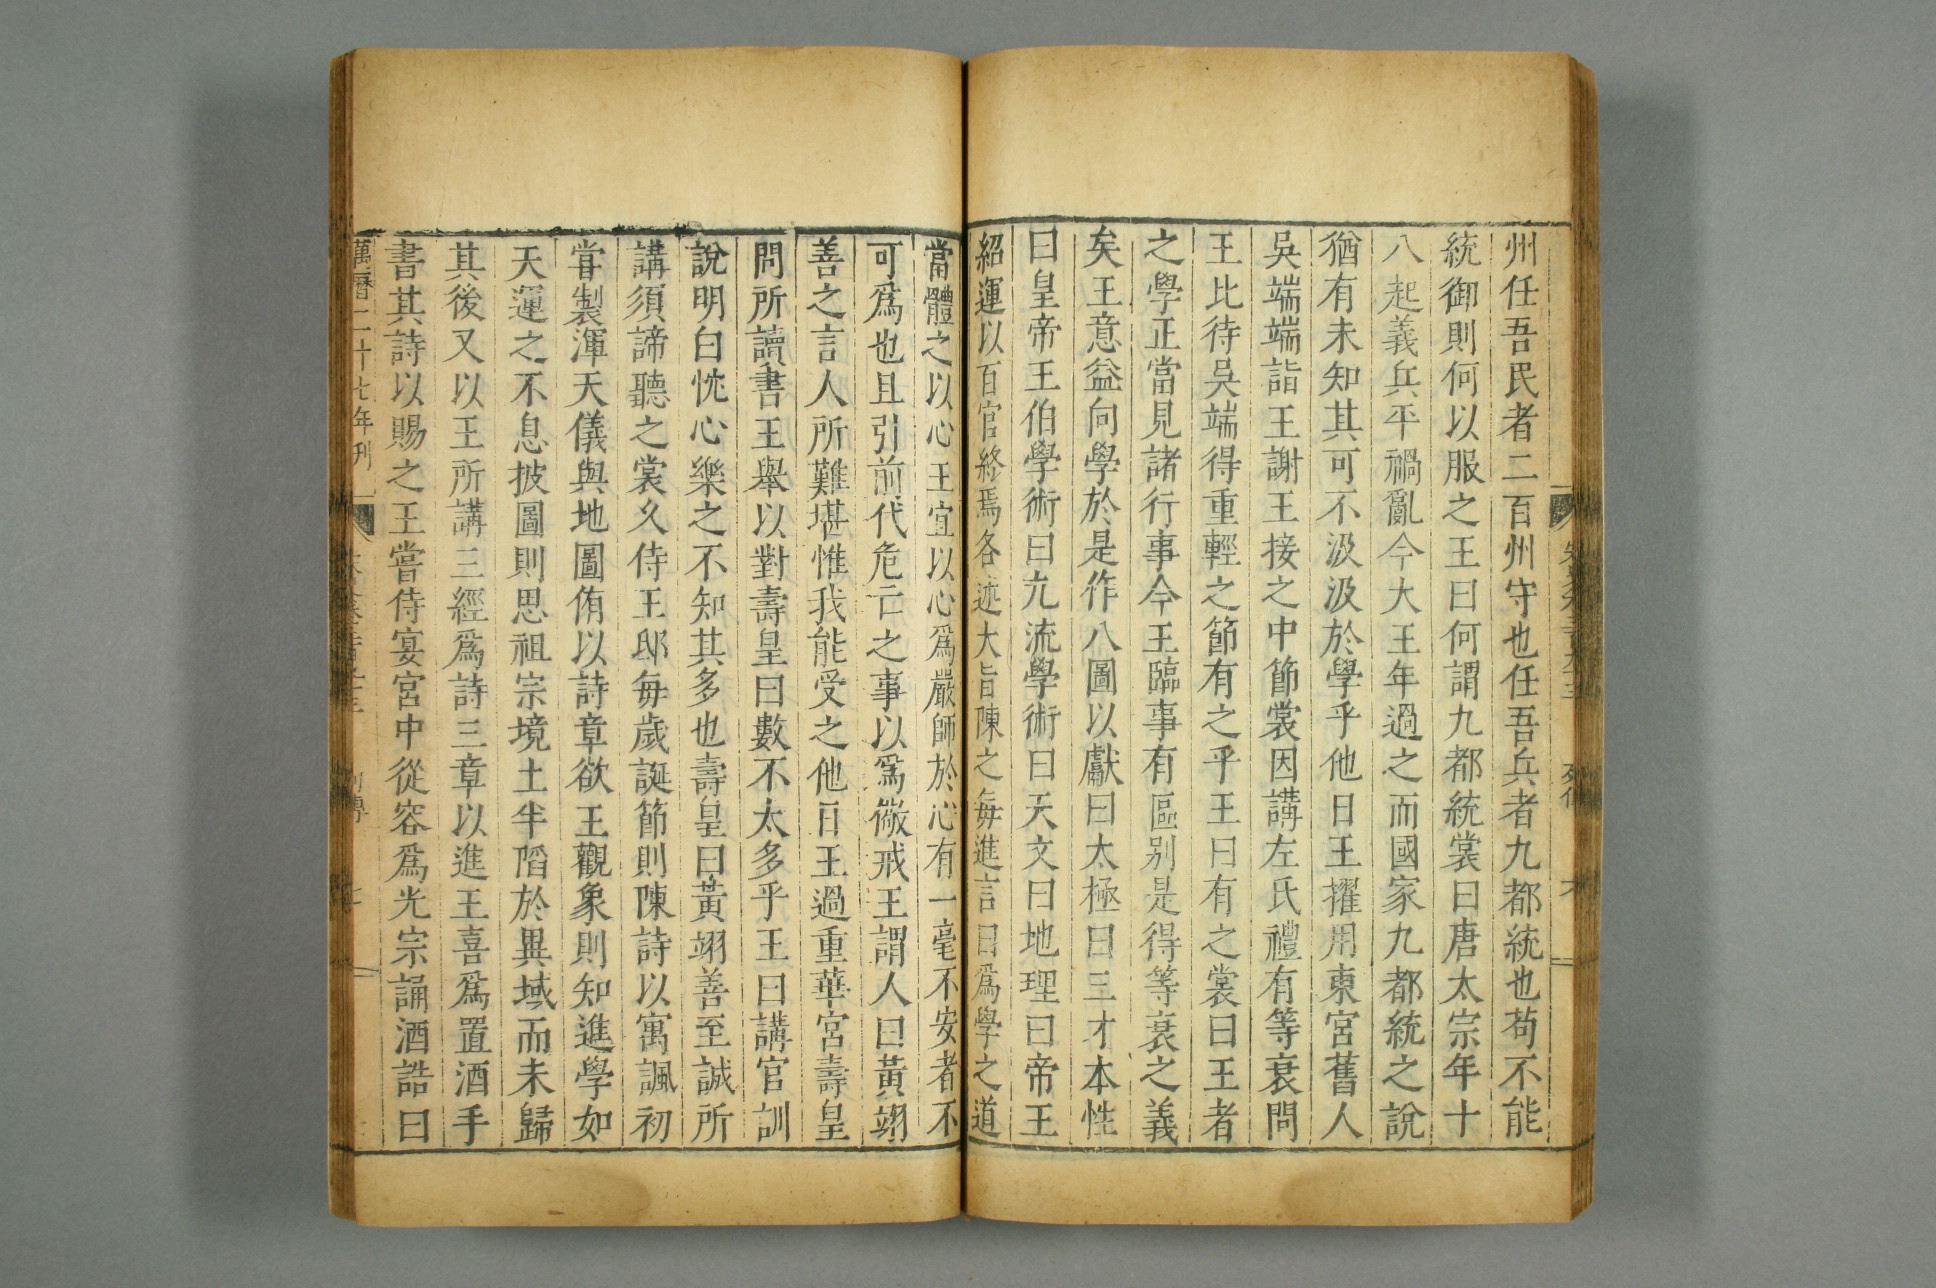 州任吾民者二百州守也任吾兵者九都統也苟不能
統御則何以服之王曰何謂九都統裳曰唐太宗年十
八起義兵平禍亂今大王年過之而國家九都統之說
猶有未知其可不汲汲於學乎他日王擢用東宮舊人
吳端端詣王謝王接之中節裳因講左氏禮有等衰問
王比待吳端得重輕之節有之乎王曰有之裳曰王者
之學正當見諸行事今王臨事有區别是得等衰之義
矣王意益向學於是作八圖以獻曰太極曰三才本性
曰皇帝王伯學術曰九流學術曰天文曰地理曰帝王
紹運以百官終焉各述大旨陳之每進言曰爲學之道
當體之以心王宜以心爲嚴師於心有一毫不安者不
可爲也且引前代危亡之事以爲儆戒王謂人曰黃翊
善之言人所難堪惟我能受之他日王過重華宮壽皇
問所讀書王舉以對壽皇曰數不太多乎王曰講官訓
說明白忱心樂之不知其多也壽皇曰黃翊善至誠所
講須諦聽之裳久侍王邸每歲誕節則陳詩以寓諷初
甞製渾天儀與地圖侑以詩章欲王觀象則知進學如
天運之不息披圖則思祖宗境土半陷於異域而未歸
其後又以王所講三經爲詩三章以進王喜爲置酒手
書其詩以賜之王嘗侍宴宮中從容爲光宗誦酒誥曰
萬曆二十七年刊